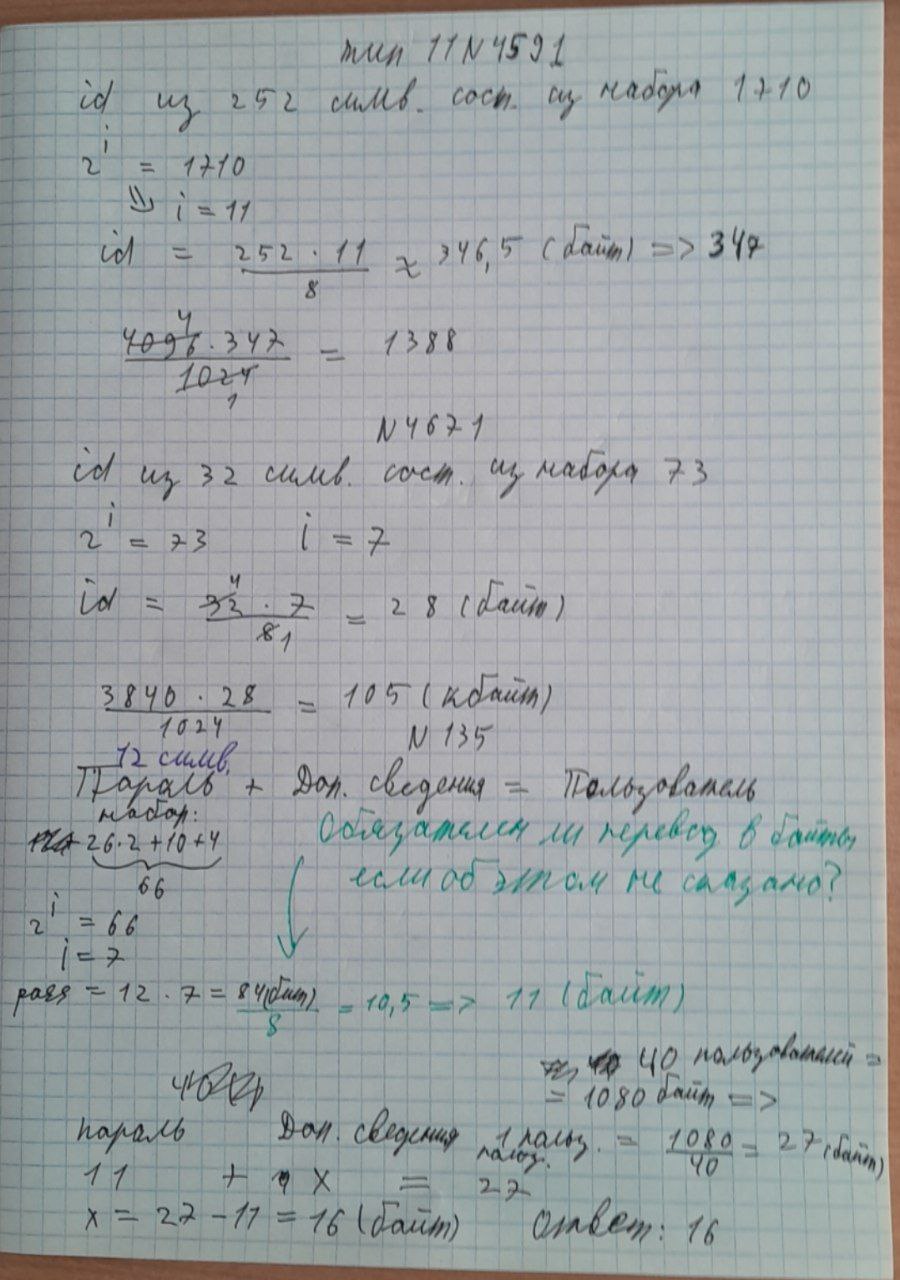 тип 11 N 4591
id из 252 симв. сост. из набора 1710
2^i = 1710
=> i = 11
id = 252 · 11 / 8 ≈ 346,5 (байт) => 347
4096 · 347 / 1024 = 1388
4
1
N 4671
id из 32 симв. сост. из набора 73
2^i = 73 i = 7
id = 32 · 7 / 8 = 28 (байт)
4
1
3840 · 28 / 1024 = 105 (кбайт)
N 135
12 симв.
Параль + Доп. сведения = Пользователь
набор:
26·2+10+4
66
Обязателен ли перевод в байты
если об этом не сказано?
2^i = 66
i = 7
pass = 12 · 7 = 84(бит) / 8 = 10,5 => 11 (байт)
40 пользователей =
= 1080 байт =>
параль Доп. сведения 1 польз. = 1080 / 40 = 27 (байт)
польз.
11 + x = 27
x = 27 - 11 = 16 (байт) Ответ: 16